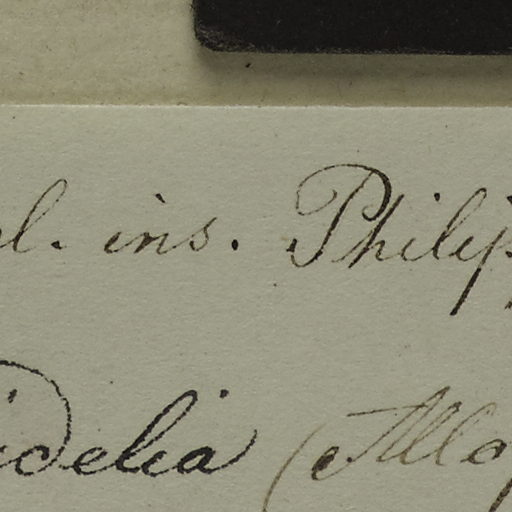 l. ins. Philip
idelia (Allo